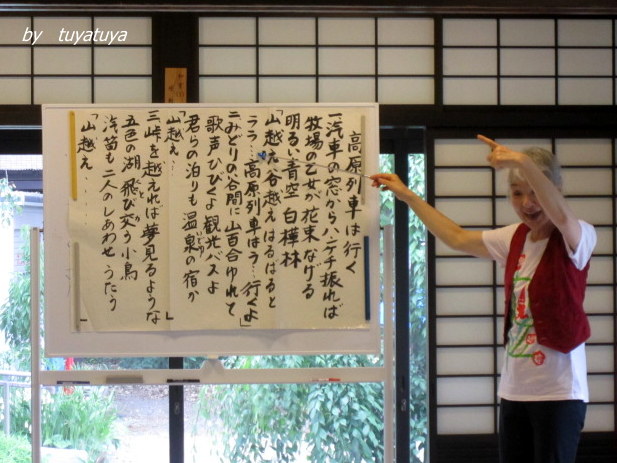 by tuyatuya
高原列車は行く
一汽車の窓からハンケチ振れば
牧場の乙女が花束なげる
明るい青空 白樺林
「山越え谷越えはるばると
ララ…高原列車はラ…行くよ」
二みどりの谷間に山百合ゆれて
歌声ひびくよ観光バスよ
君らの泊りも温泉の宿か
「山越え‥」
三峠を越えれば夢見るような
五色の湖 飛び交う小鳥
汽笛も二人のしあわせ うたう
「山越え‥」